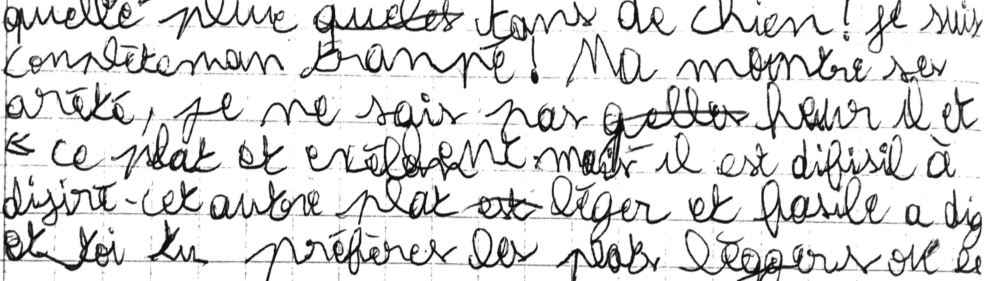 quelle pluie quelet tans de chien ! je suis
complèteman trampé ! Ma montre ses
arèté, je ne sais pas qelle heur il et
« ce plat et exélent mais il est difisil à
dijiré. cet autre plat est léger et fasile a dig
et toi tu préfères les plats léggers ou le